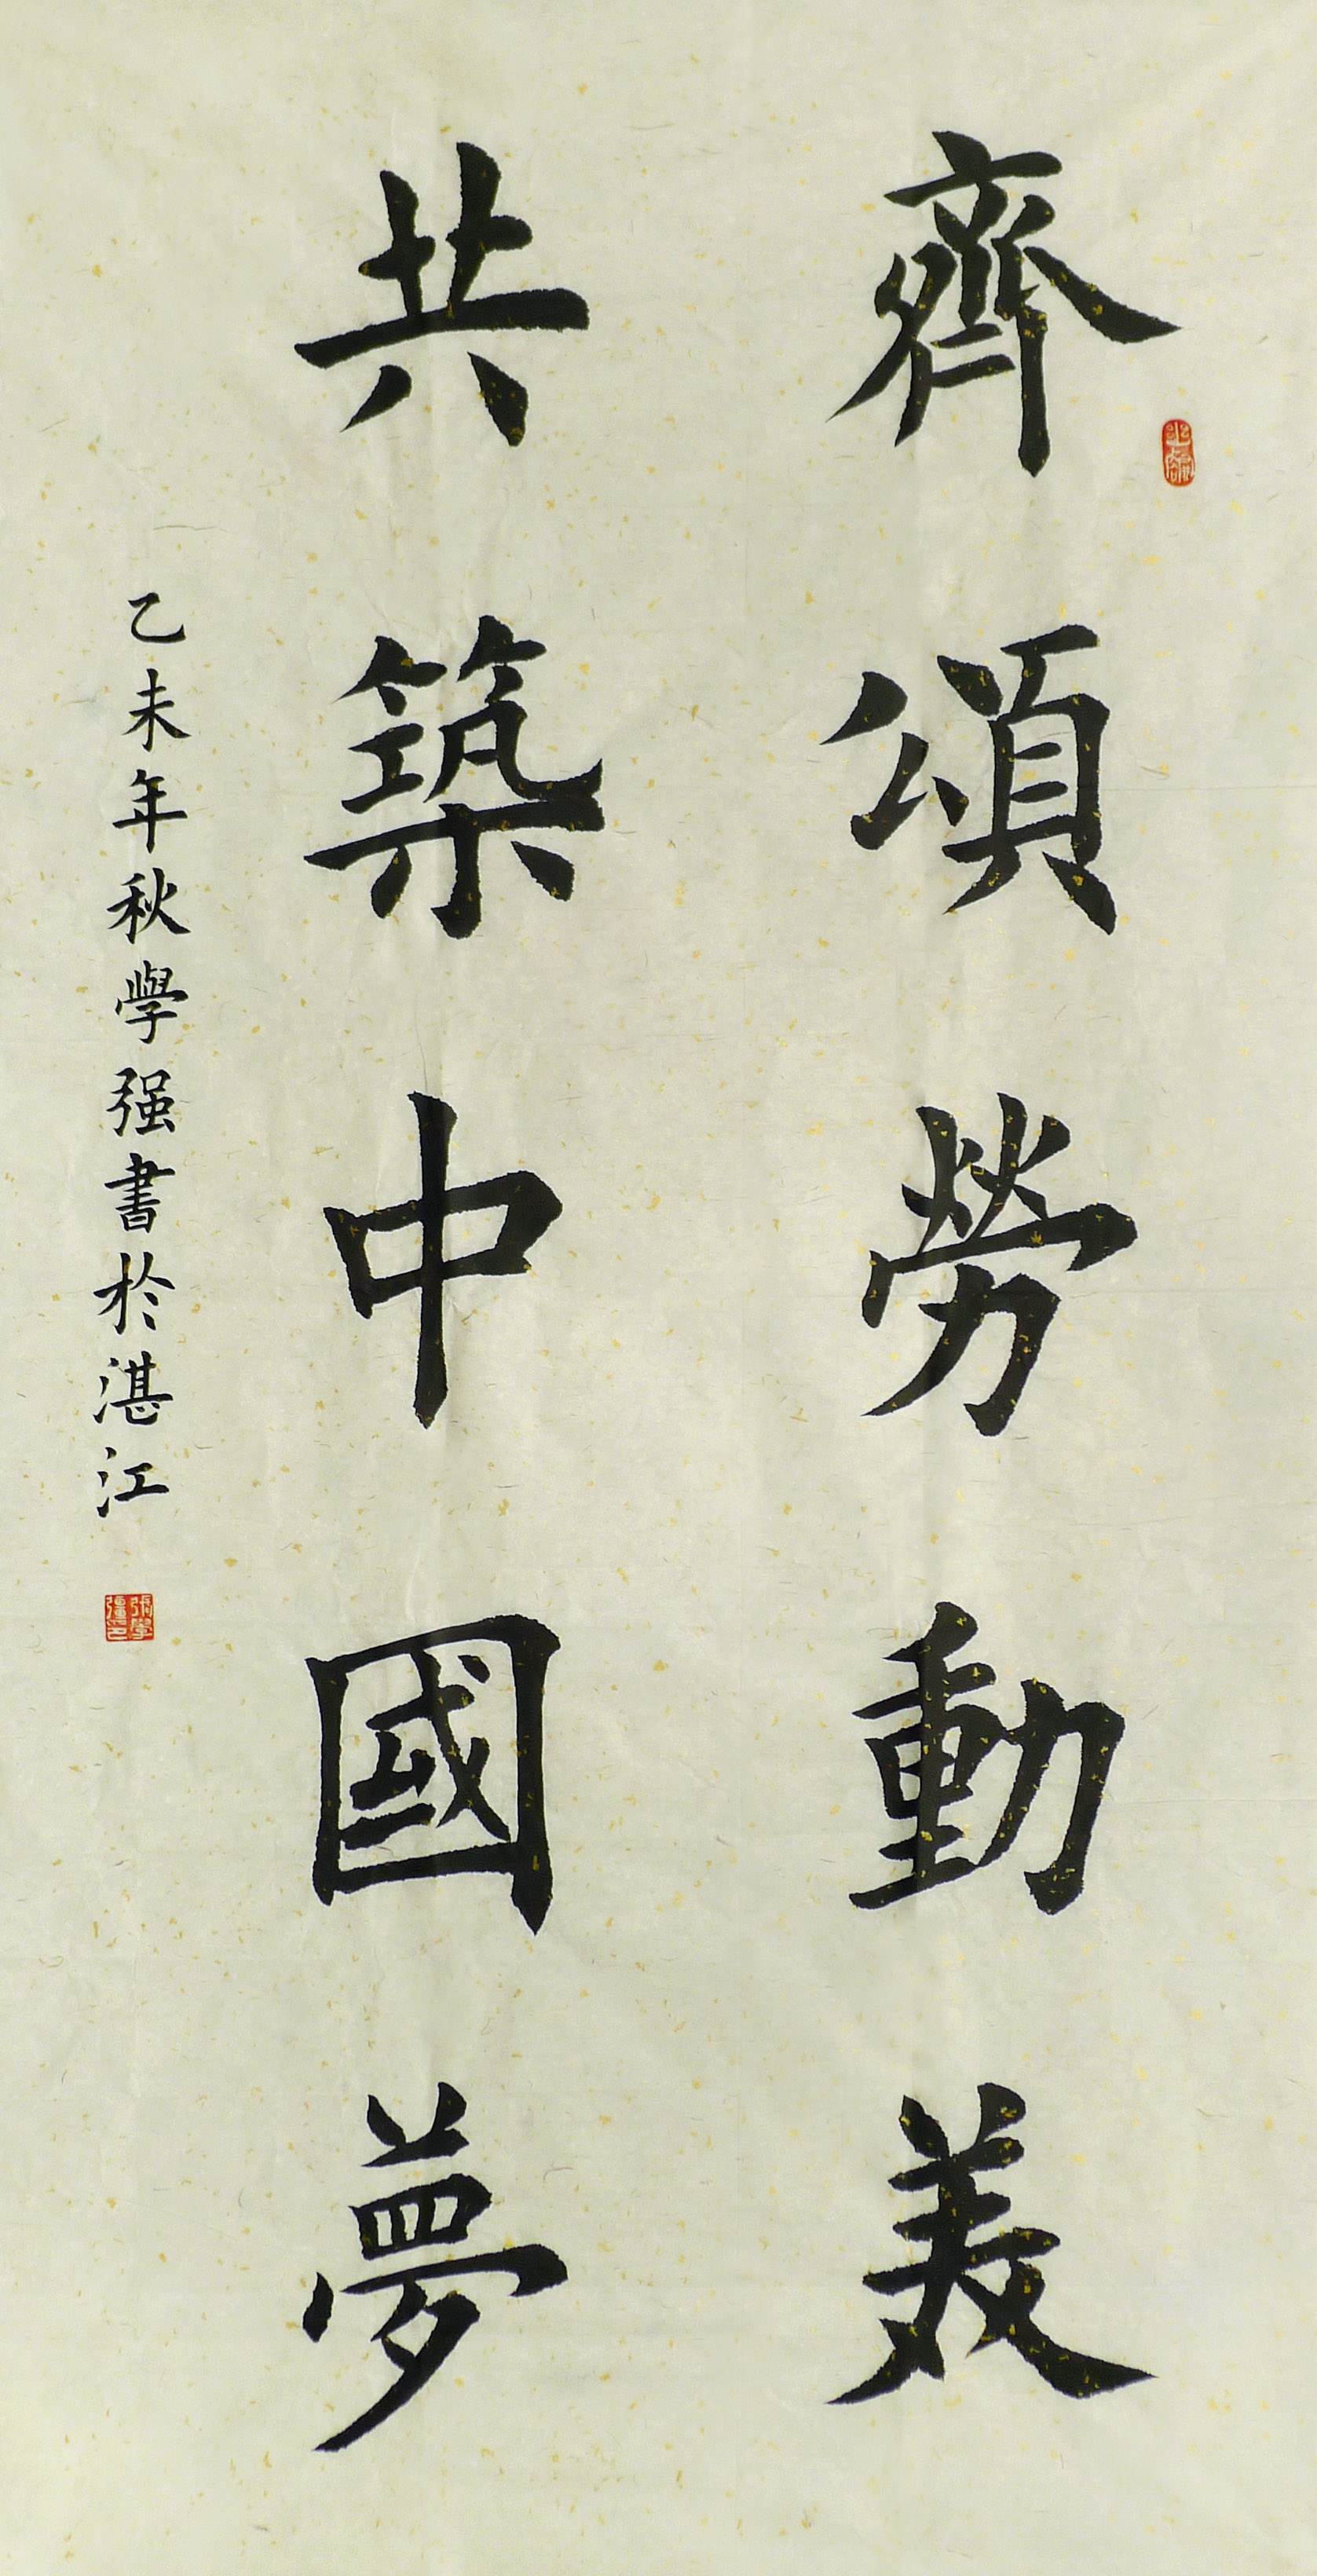 齊頌勞動美
共築中國夢
乙未年秋學强書於湛江
張學彊印